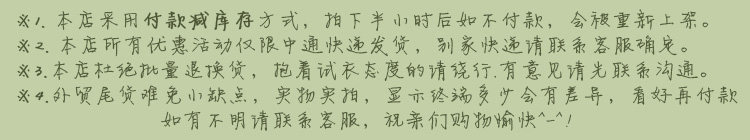 ※1.本店采用付款减库存方式，拍下半小时后如不付款，会被重新上架。
※2.本店所有优惠活动仅限中通快递发货，别家快递请联系客服确定。
※3.本店杜绝批量退换货，抱着试衣态度的请绕行.有意见请先联系沟通。
※4.外贸尾货难免小缺点，实物实拍，显示终端多少会有差异，看好再付款
如有不明请联系客服，祝亲们购物愉快^-^!